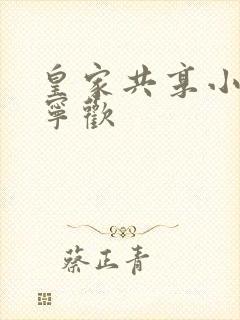 皇家共享小
寧歡
蔡正青